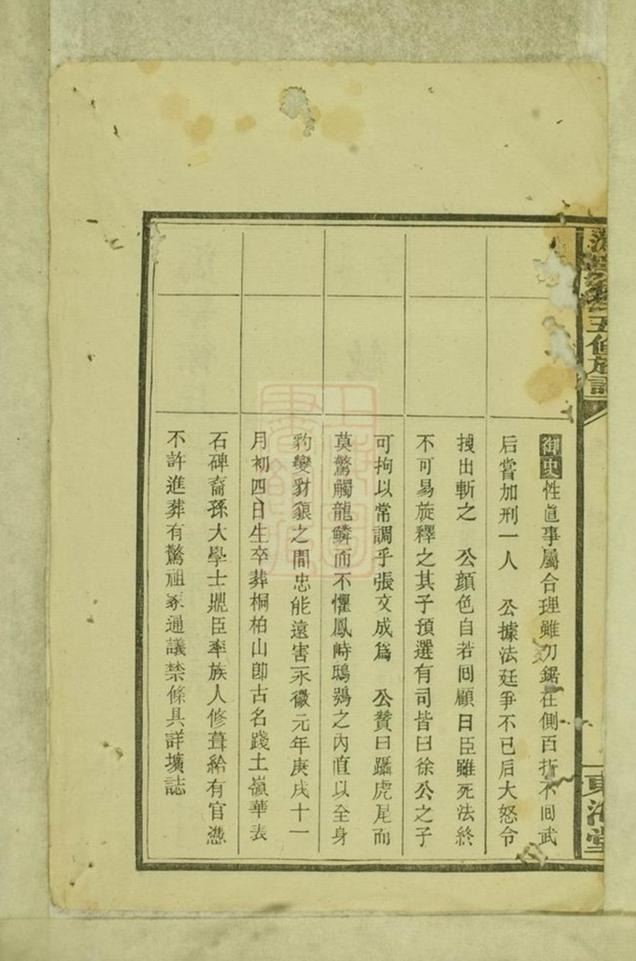 五修族譜
東海堂
御史性眞事屬合理雖刀鋸在側百折不回武
后嘗加刑一人　公據法廷爭不已后大怒令
拽出斬之　公顏色自若回顧曰臣雖死法終
不可易旋釋之其子預選有司皆曰徐公之子
可拘以常調乎張文成爲　公贊曰躡虎尾而
莫驚觸龍鱗而不懼鳳峙鴟鴞之內直以全身
豹變豺狼之間忠能遠害永徽元年庚戌十一
月初四日生卒葬桐柏山卽古名踐土嶺華表
石碑裔孫大學士鼎臣率族人修葺給有官憑
不許進葬有驚祖冢通議禁條具詳壙誌